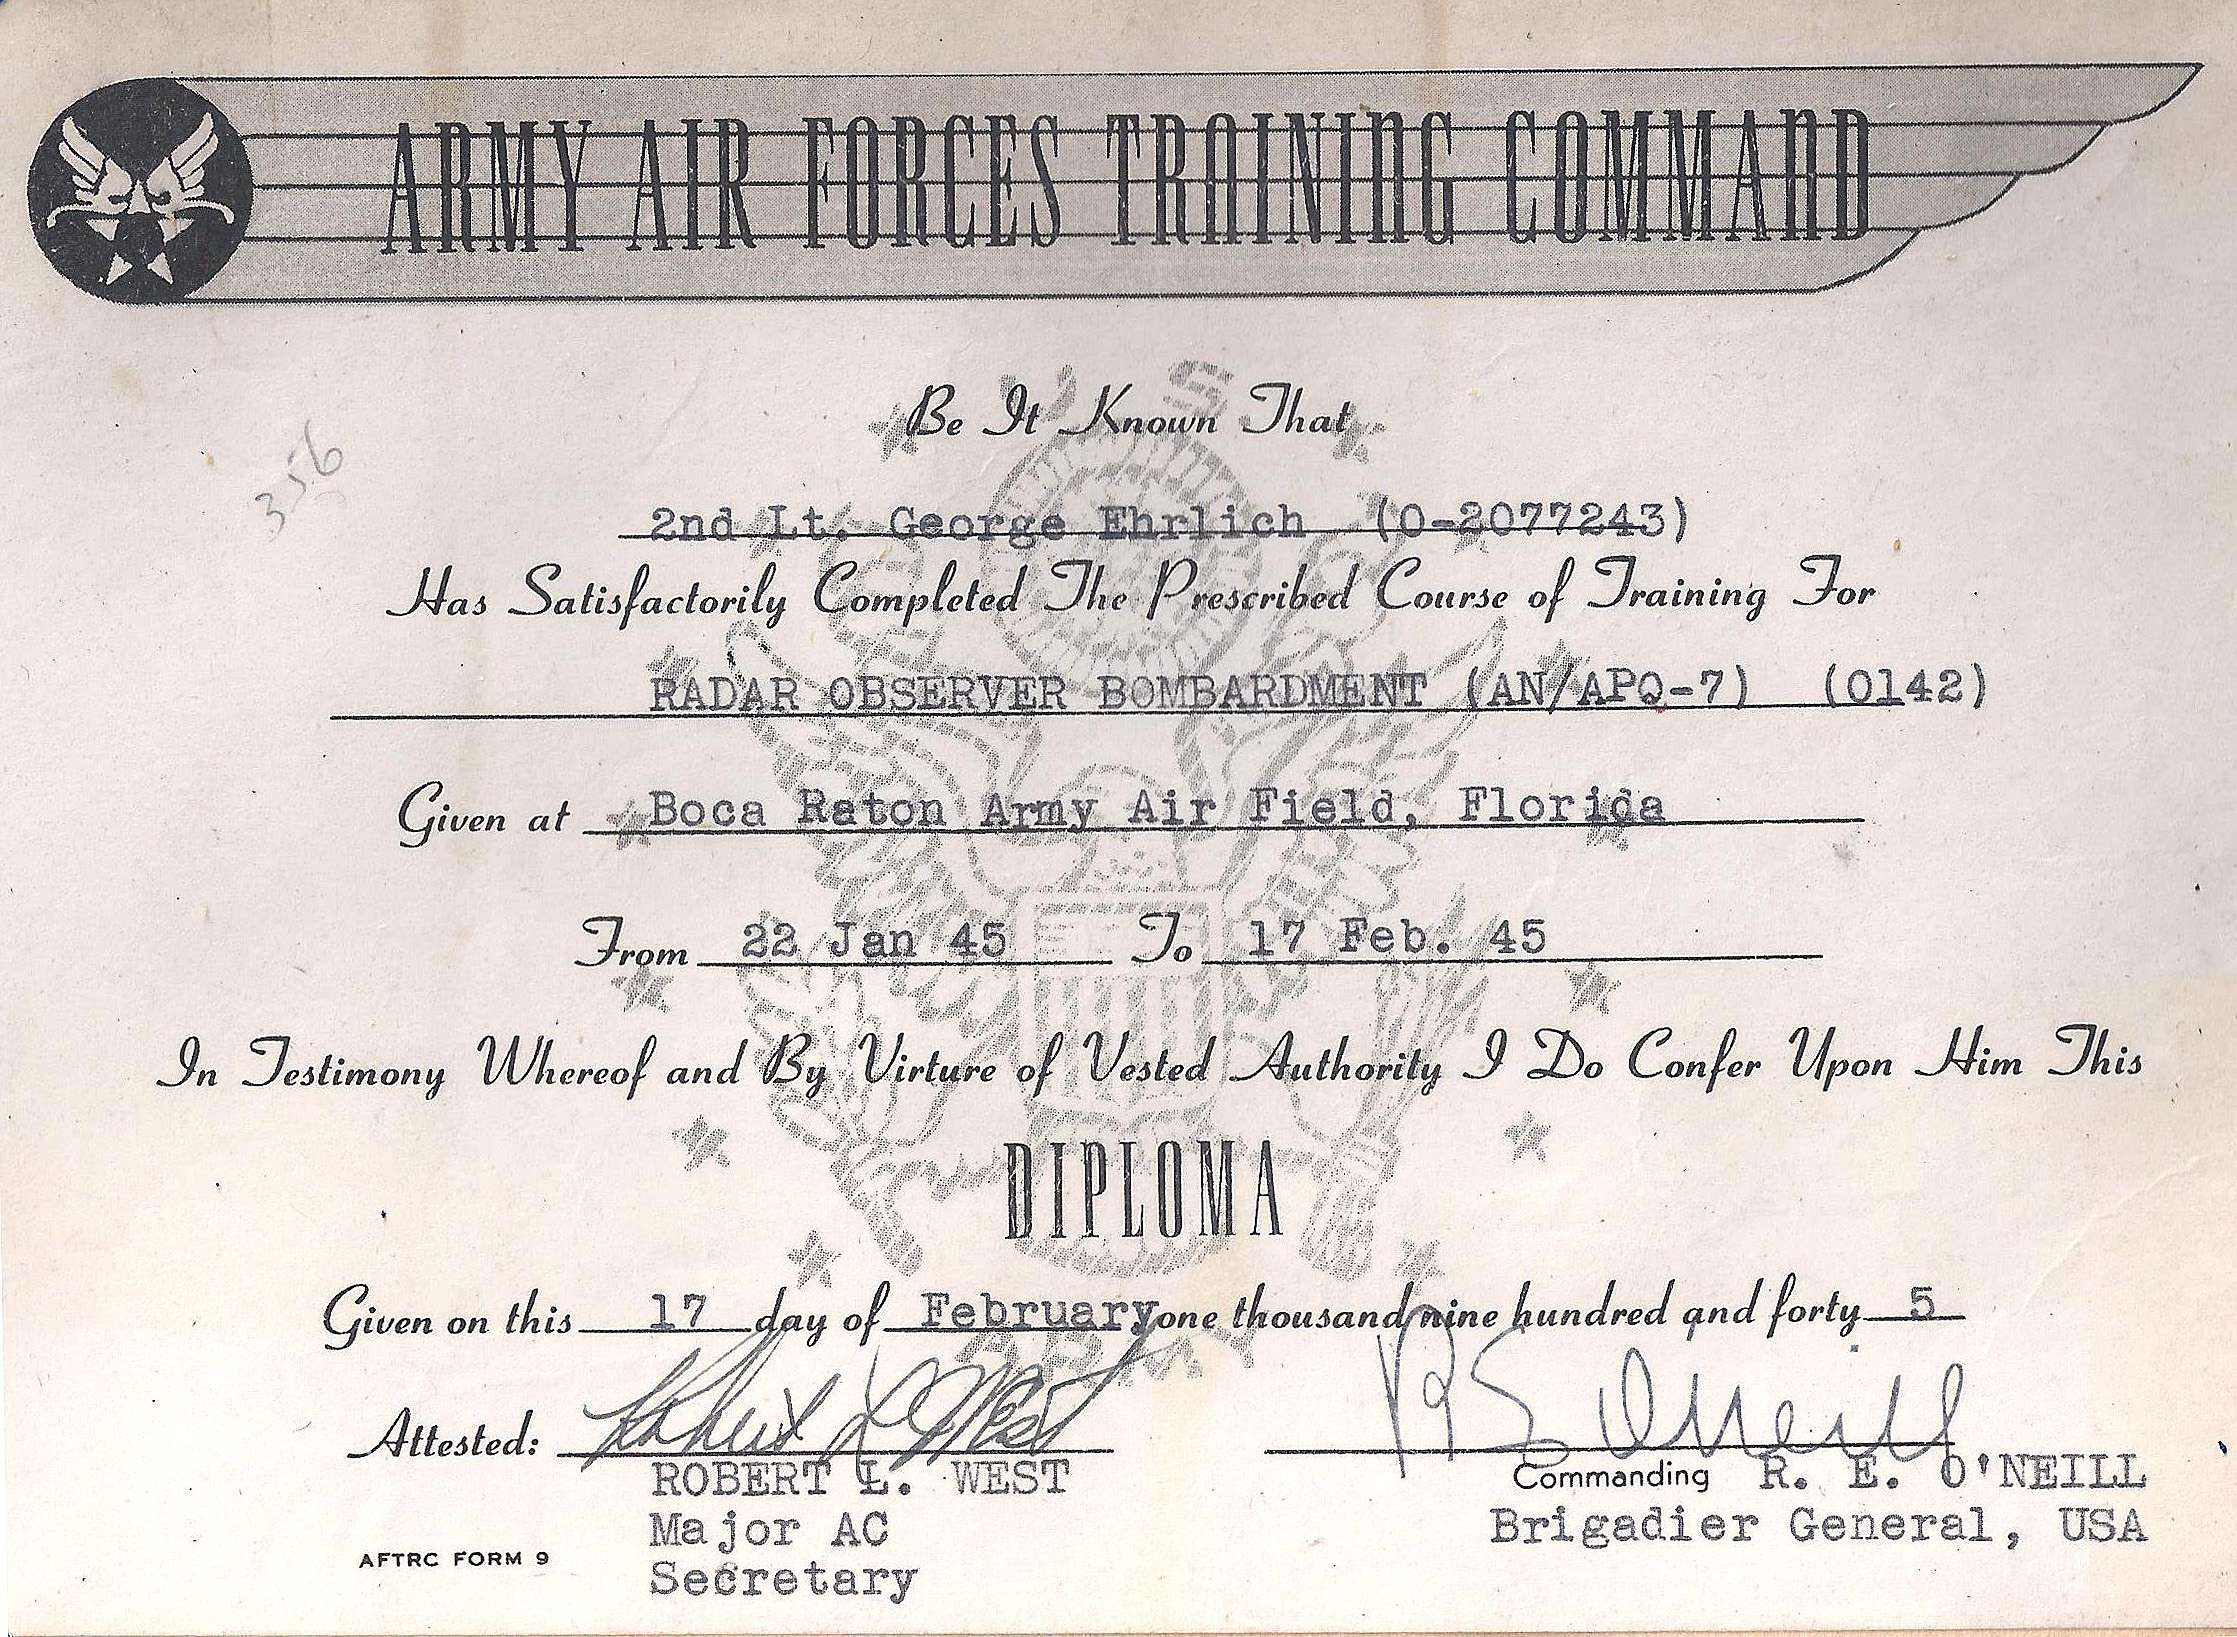 ARMY AIR FORCES TRAINING COMMAND
U S
Be It Known That
356
2nd Lt. George Ehrlich (O-2077243)
Has Satisfactorily Completed The Prescribed Course of Training For
RADAR OBSERVER BOMBARDMENT (AN/APQ-7) (0142)
Given at Boca Raton Army Air Field, Florida
From 22 Jan 45 To 17 Feb. 45
In Testimony Whereof and By Virture of Vested Authority I Do Confer Upon Him This
DIPLOMA
Given on this 17 day of February one thousand nine hundred and forty 5
ARMY
Attested: Robert L West R E O'Neill
ROBERT L. WEST Commanding R. E. O'NEILL
Major AC Brigadier General, USA
AFTRC FORM 9 Secretary